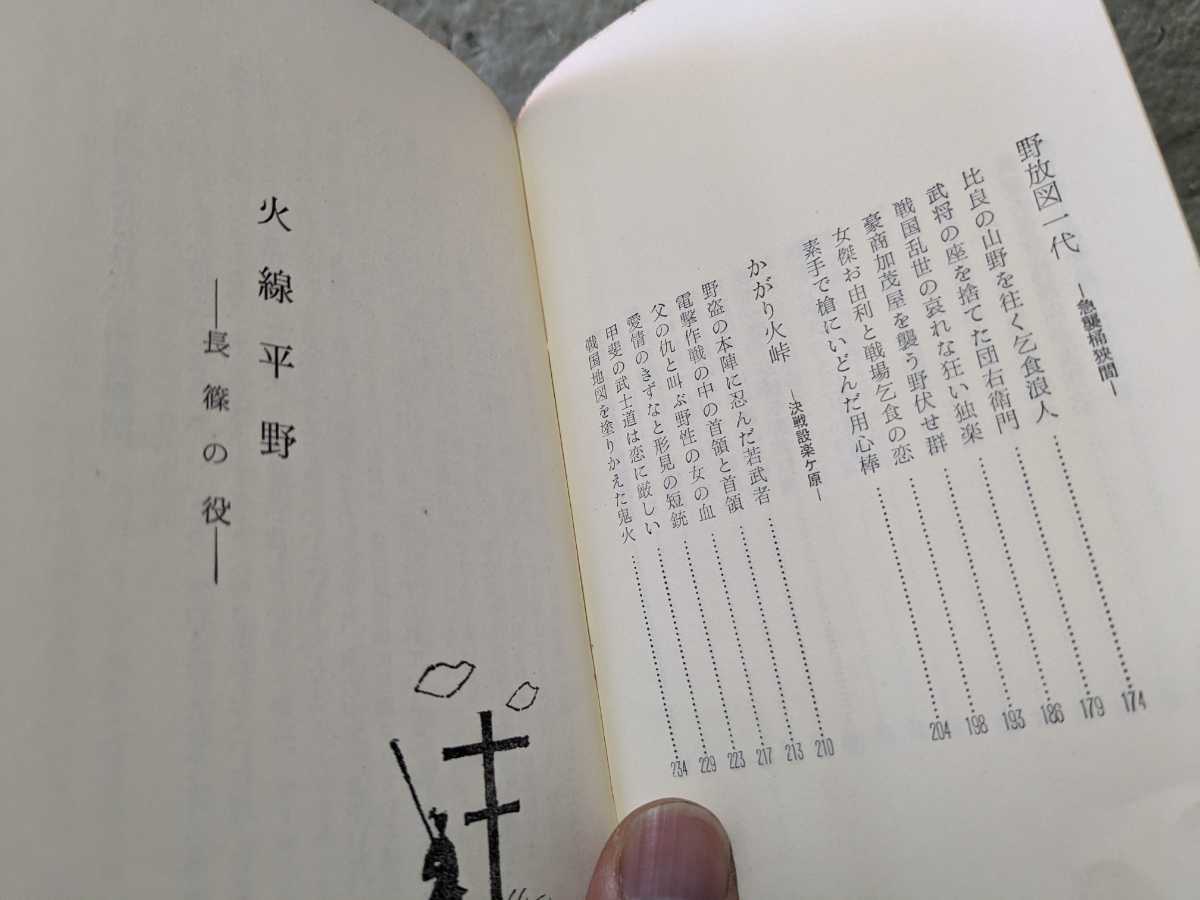 野放図一代 ―急襲桶狭間―
比良の山野を往く乞食浪人……174
武将の座を捨てた団右衛門……179
戦国乱世の哀れな狂い独楽……186
豪商加茂屋を襲う野伏せ群……193
女傑お由利と戦場乞食の恋……198
素手で槍にいどんだ用心棒……204
かがり火峠 ―決戦設楽ケ原―
野盗の本陣に忍んだ若武者……210
電撃作戦の中の首領と首領……213
父の仇と叫ぶ野性の女の血……217
愛情のきずなと形見の短銃……223
甲斐の武士道は恋に厳しい……229
戦国地図を塗りかえた鬼火……234
火線平野
―長篠の役―